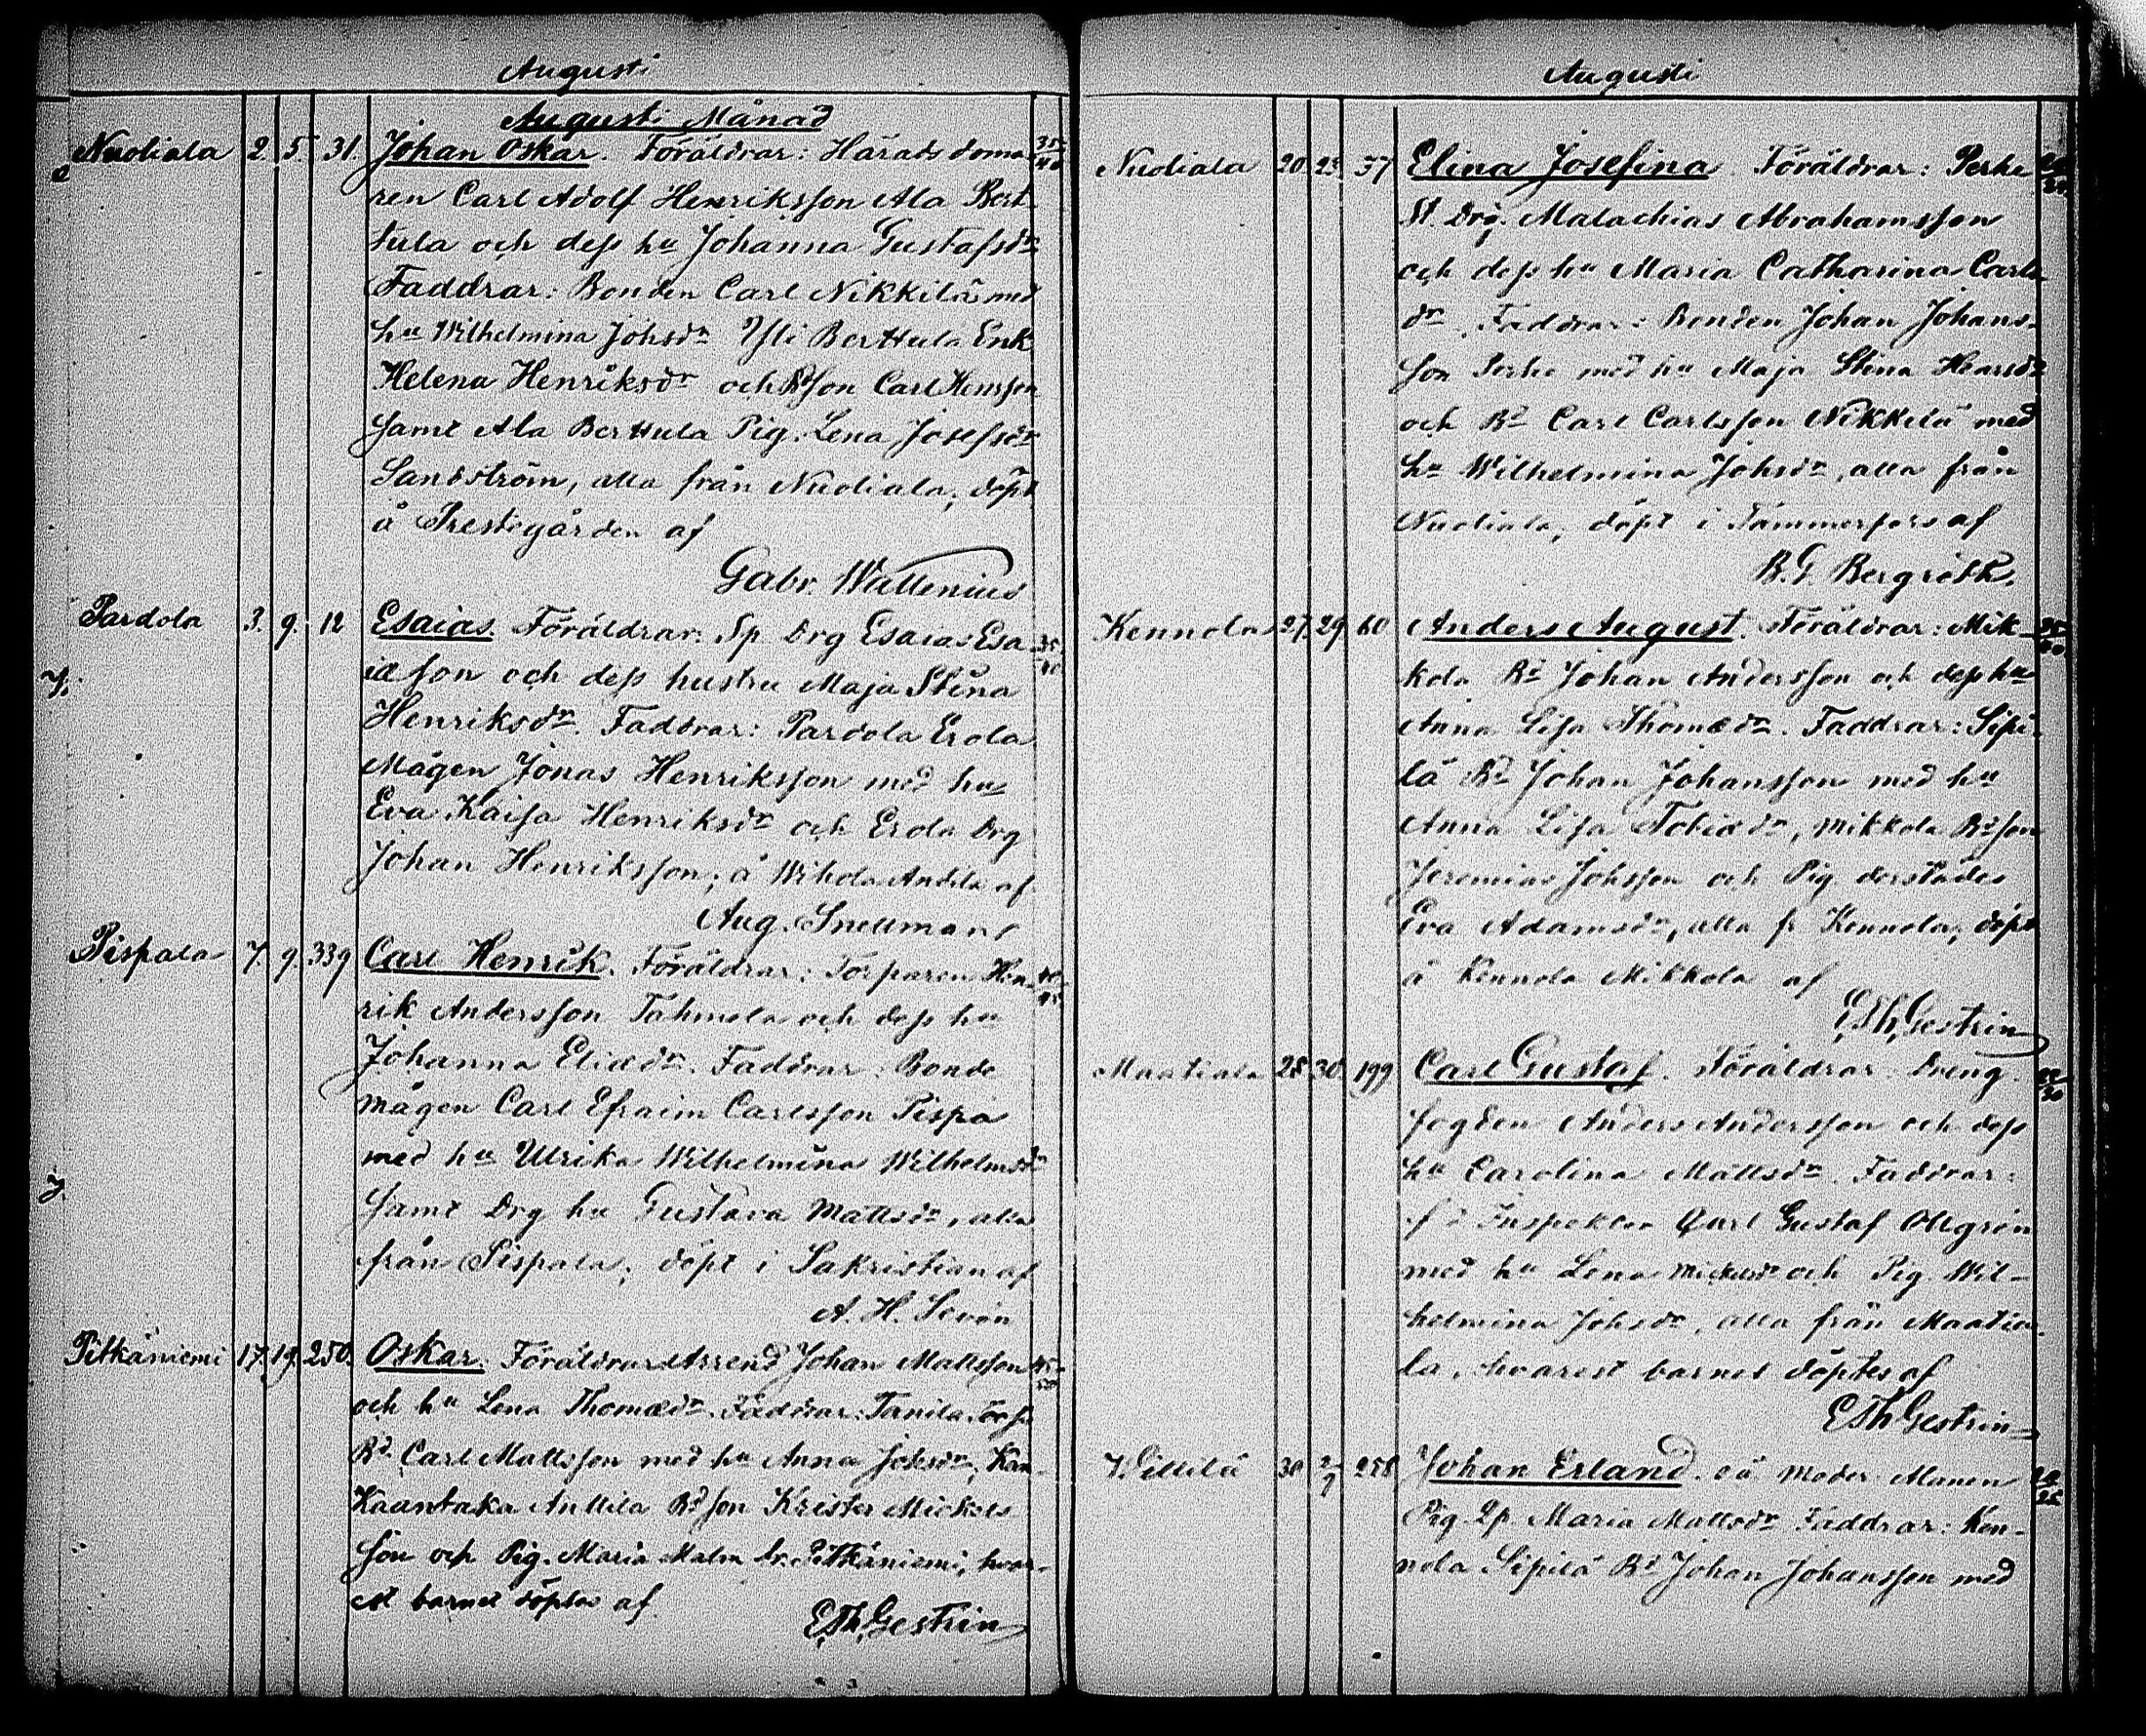 Augusti
Augusti Månad
Nuoliala 2. 5. 31. Johan Oskar. Föräldrar: Härads doma 35/40
ren Carl Adolf Henriksson Ala Bert
tula och dess hu Johanna Gustafsdr
Faddrar: Bonden Carl Nikkilä med
hu Wilhelmina Johsdr Yli Berttula Enk
Helena Henriksdr och Bdson Carl Henrsson
samt Ala Berttula Pig. Lena Josefsdr
Sandström, alla från Nuoliala, döpt
å Prestegården af
Gabr. Wallenius
Pardola 3. 9. 12 Esaias. Föräldrar: Sp Drg Esaias Esa 35/40
iæson och dess hustru Maja Stina
Henriksdr. Faddrar: Pardola Erola
Mågen Jonas Henriksson med hu
Eva Kaisa Henriksdr och Erola Drg
Johan Henriksson; å Wihola Anttila af
Aug. Snellman
Pispala 7. 9. 339 Carl Henrik. Föräldrar: Torparen Hen
rik Andersson Tahmela och dess hu
Johanna Eliædr. Faddrar: Bonde
mågen Carl Efraim Carlsson Pispa
med hu Ulrika Wilhelmina Wilhelmsdr
samt Drg hu Gustava Mattsdr, alla
från Pispala; döpt i Sakristian af
A. H. Sevón
Pitkäniemi 17. 19. 250. Oskar. Föräldrar: Arrend Johan Mattsson 45/50
och hu Lena Thomædr. Faddrar: Tanila
Bd Carl Mattsson med hu Anna Johsdr, Kan
kaantaka Anttila Bdson Krister Mickels
son och Pig. Maria Malm fr. Pitkäniemi, hvar
est barnet döptes af
E Th Gestrin
Augusti
Nuoliala 20. 23. 37 Elina Josefina. Föräldrar: Perhe
St. Drg. Malachias Abrahamsson
och dess hu Maria Catharina Carls
dr. Faddrar: Bonden Johan Johans
son Perhe med hu Maja Stina
och Bd Carl Carlsson Nikkilä med
hu Wilhelmina Johsdr, alla från
Nuoliala, döpt i Tammerfors af
B. G. Bergroth.
Kennola 27. 29. 60 Anders August. Föräldrar: Mik
kola Bd Johan Andersson och dess hu
Anna Lisa Thomædr. Faddrar: Sipi
lä Bd Johan Johansson med hu
Anna Lisa Tobiædr, Mikkola Bdson
Jeremias Johsson och Pig. derstädes
Eva Adamsdr, alla fr Kennola, döpt
å Kennola Mikkola af
E Th Gestrin
Maatiala 28. 30. 199 Carl Gustaf. Föräldrar: Dreng
fogden Anders Andersson och dess
hu Carolina Mattsdr. Faddrar:
f d Inspektor Carl Gustaf Allgrén
med hu Lena Mickelsdr och Pig. Wil-
helmina Johsdr, alla från Maatia
la, hvarest barnet döptes af
E Th Gestrin
Willilä 30 2/9 258 Johan Erland. oä Moder: Manen 20/25
Pig. Lp. Maria Mattsdr Faddrar: Ken-
nola Sipilä Bd Johan Johansson med